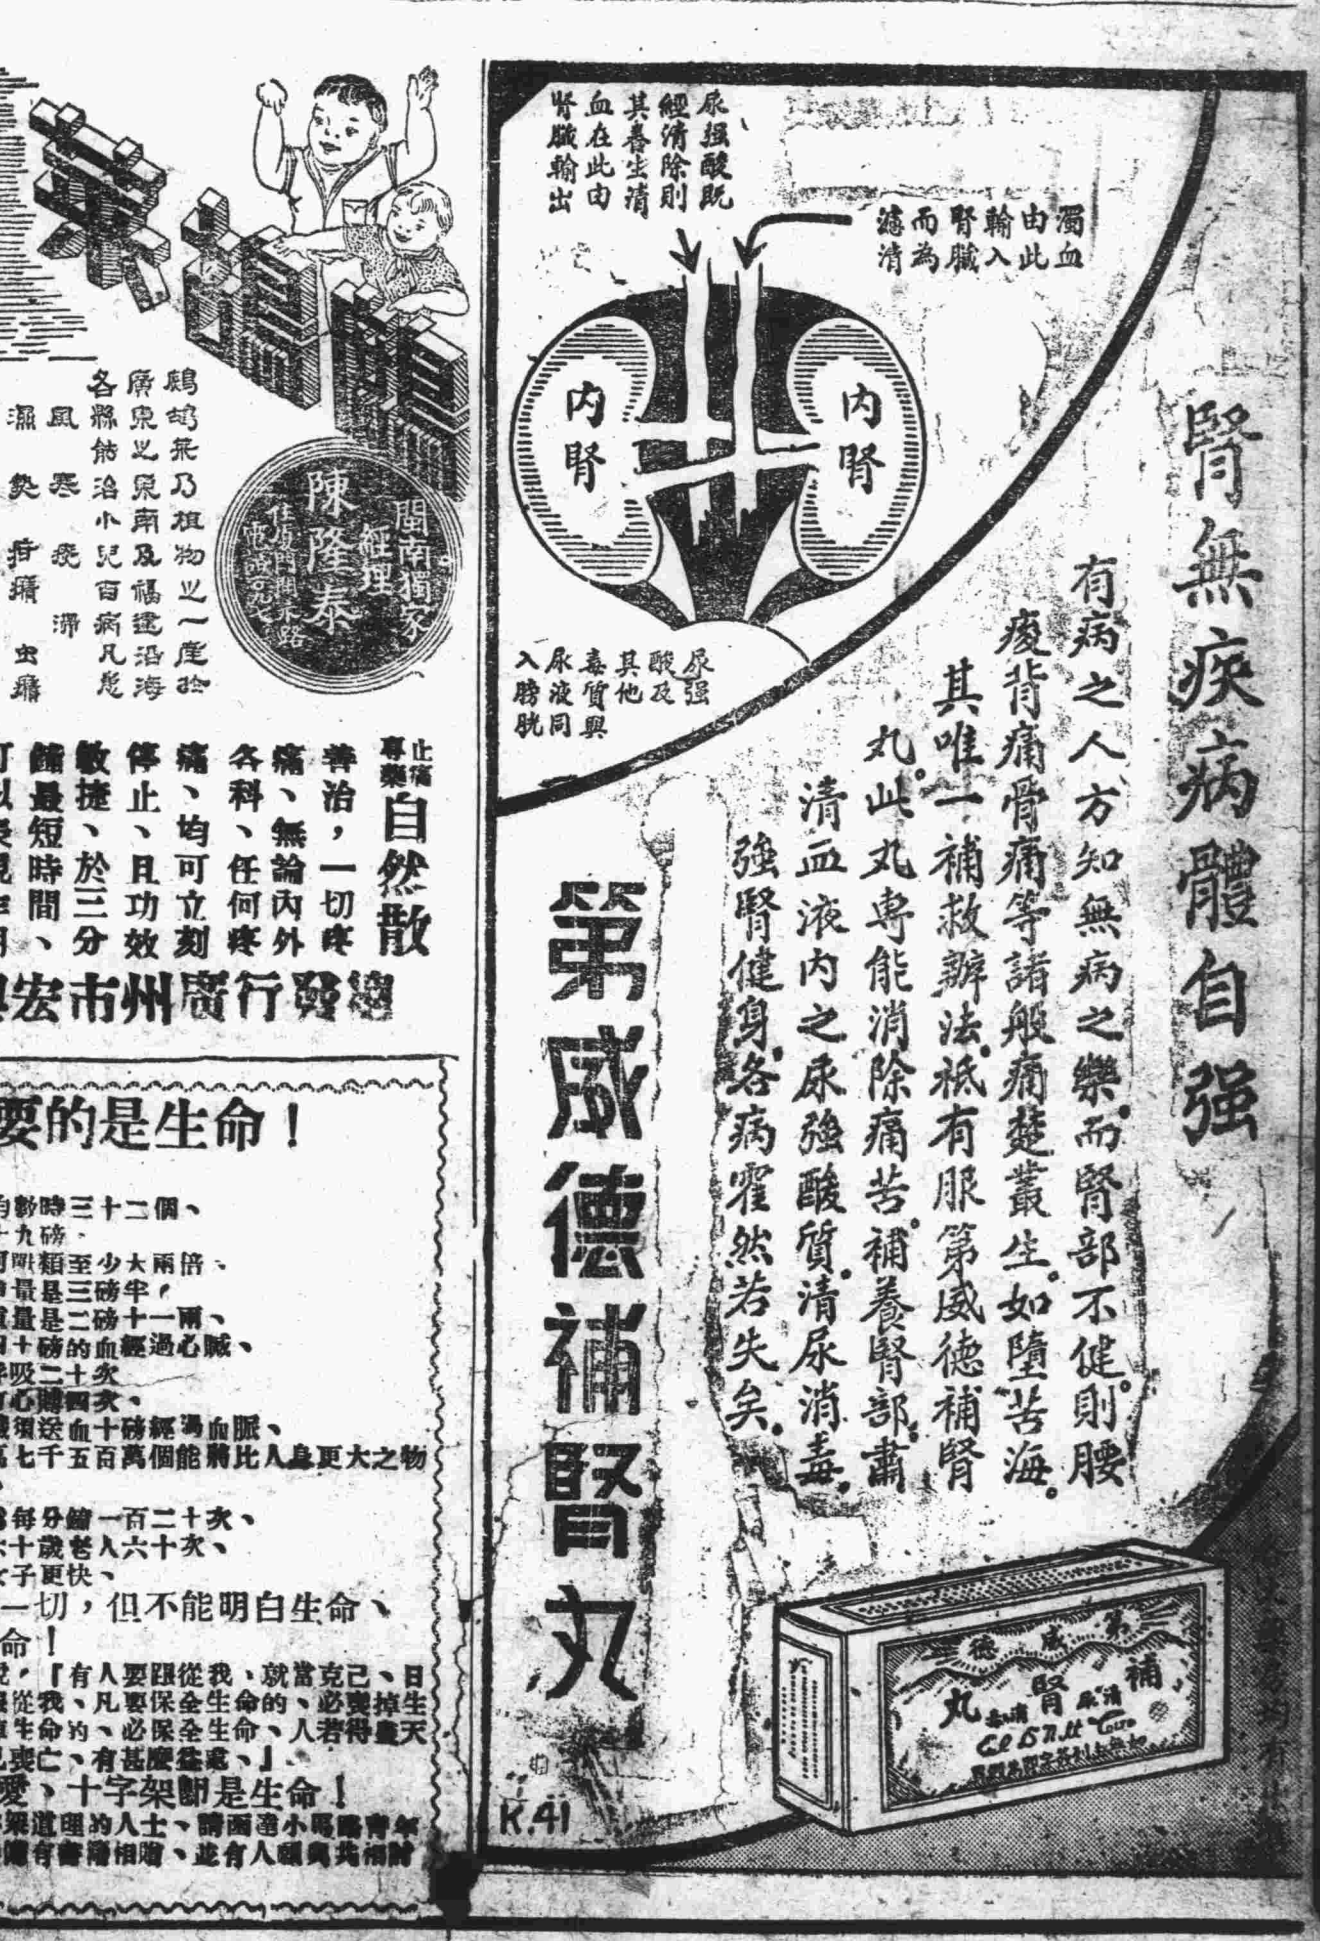 腎無疾病體自强
有病之人方知無病之樂。而腎部不健。則腰
痠背痛骨痛等諸般痛楚叢生。如墮苦海。
其唯一補救辦法。祗有服第威德補腎
丸。此丸專能消除痛苦。補養腎部。肅
清血液內之尿強酸質。清尿消毒。
強腎健身。各病霍然若失矣。
第威德補腎丸
濁血
由此
輸入
腎臟
而為
濾清
尿强酸既
經清除則
其養生清
血在此由
腎臟輸出
內腎
內腎
尿强
酸及
其他
毒質與
尿液同
入膀胱
第威德
補腎丸
K.41
鷓鴣菜
鷓鴣菜乃植物之一產於
廣東之東南及福建沿海
各縣能治小兒百病凡患
風寒痰滯
閩南獨家
經理
陳隆泰
止痛
專藥
自然散
善治，一切疼
痛、無論內外
各科、任何疼
痛、均可立刻
停止、且功效
敏捷、於三分
鐘最短時間、
總發行廣州市宏
要的是生命！
數時三十二個、
十九磅、
類至少大兩倍、
量是三磅半，
量是二磅十一兩、
十磅的血經過心臟、
呼吸二十次
心跳四次、
須送血十磅經過血脈、
七千五百萬個能將比人身更大之物
每分鐘一百二十次、
六十歲老人六十次、
女子更快、
一切，但不能明白生命、
命！
說，『有人要跟從我、就當克己、日
從我、凡要保全生命的、必喪掉生
生命的、必保全生命、人若得盡天
喪亡、有甚麼益處、』
愛、十字架卽是生命！